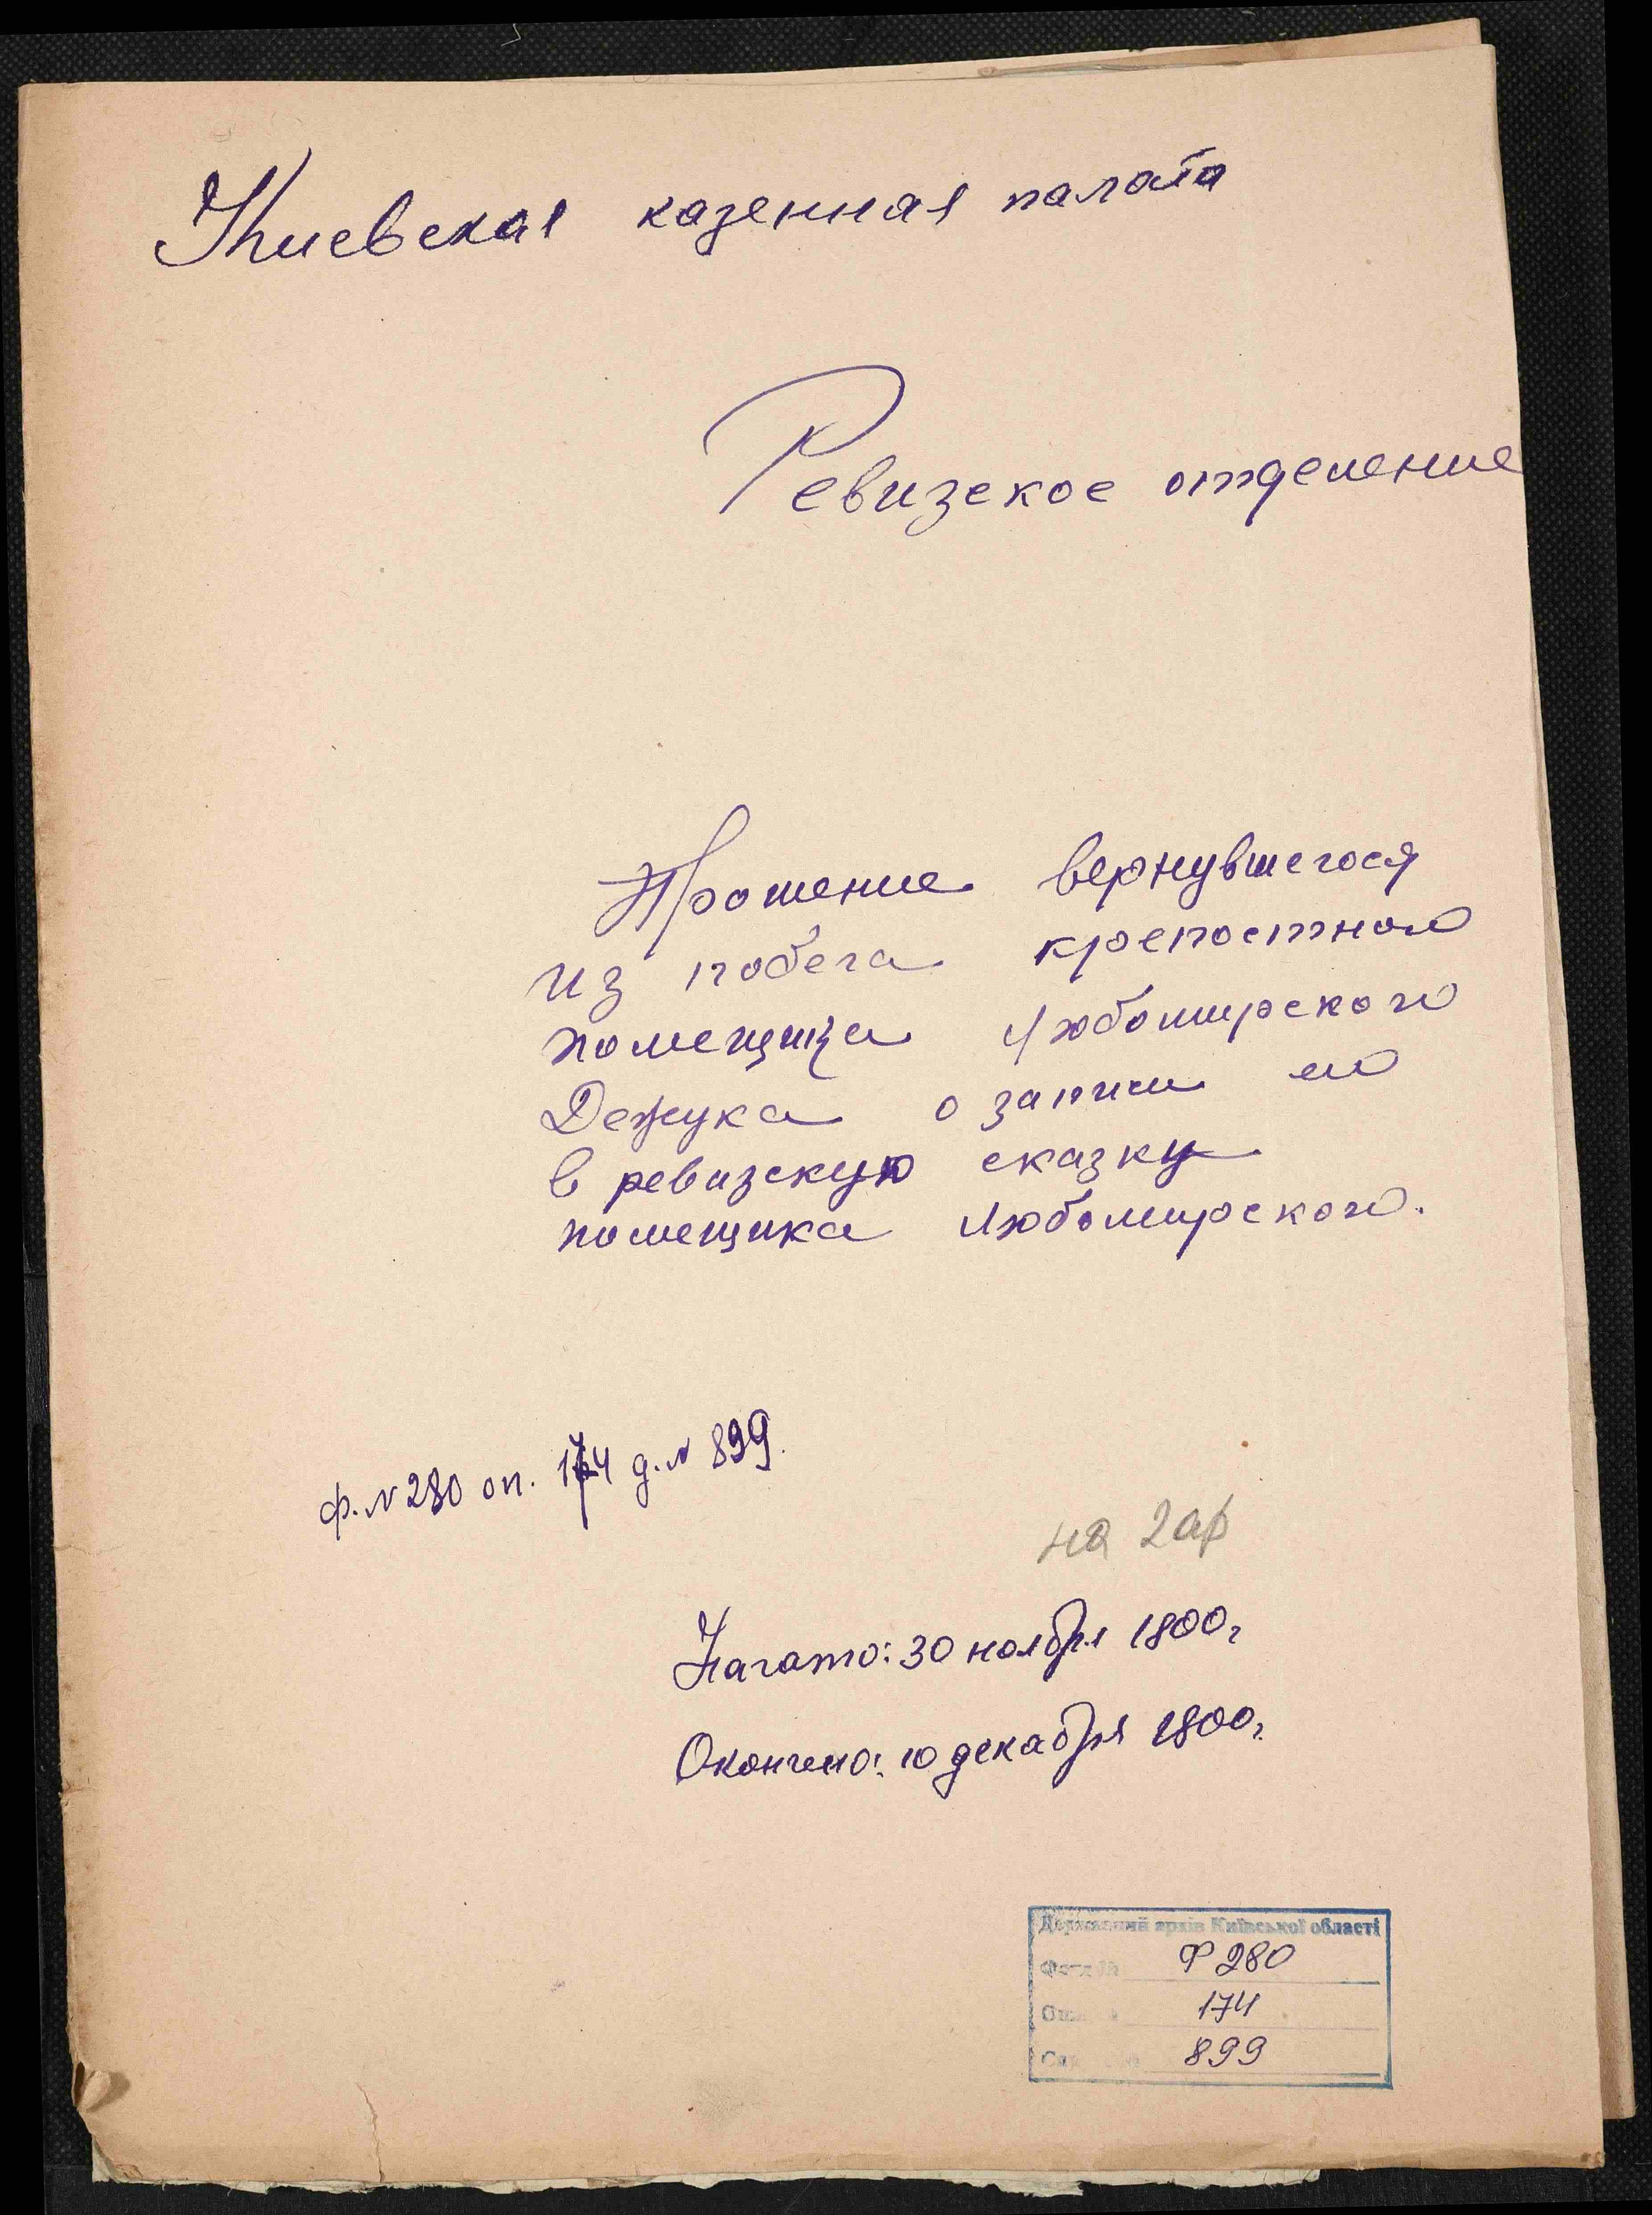 Киевская казенная палата
Ревизское отделение
Прошение вернувшегося
из побега крепостного
помещика Любомирского
о записи его
в ревизскую сказку
помещика Любомирского.
ф. N 280 оп. 174 д. N 899.
на 2 ар
Начато: 30 ноября 1800г
Окончено: 10 декабря 1800г.
Державний архів Київської області
Ф 280
174
899